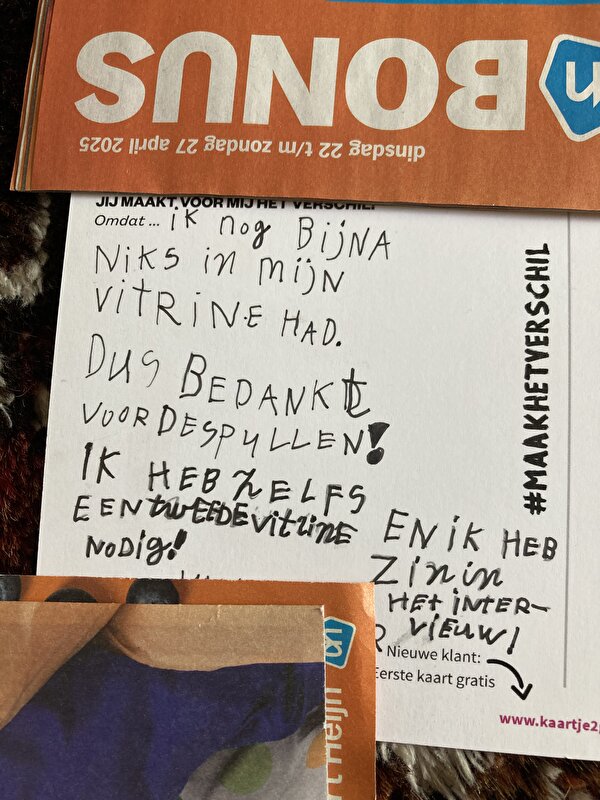 BONUS
dinsdag 22 t/m zondag 27 april 2025
JIJ MAAKT VOOR MIJ HET VERSCHIL!
Omdat ... ik nog BIJNA
NIKS in MIJN
VITRINE HAD.
DUS BEDANKT
VOOR DE SPULLEN!
IK HEB ZELFS
EEN TWEEDE VITRINE
NODIG!
EN IK HEB
ZIN in
HET INTER-
VIEUW!
#MAAKHETVERSCHIL
Nieuwe klant:
Eerste kaart gratis
www.kaartje2